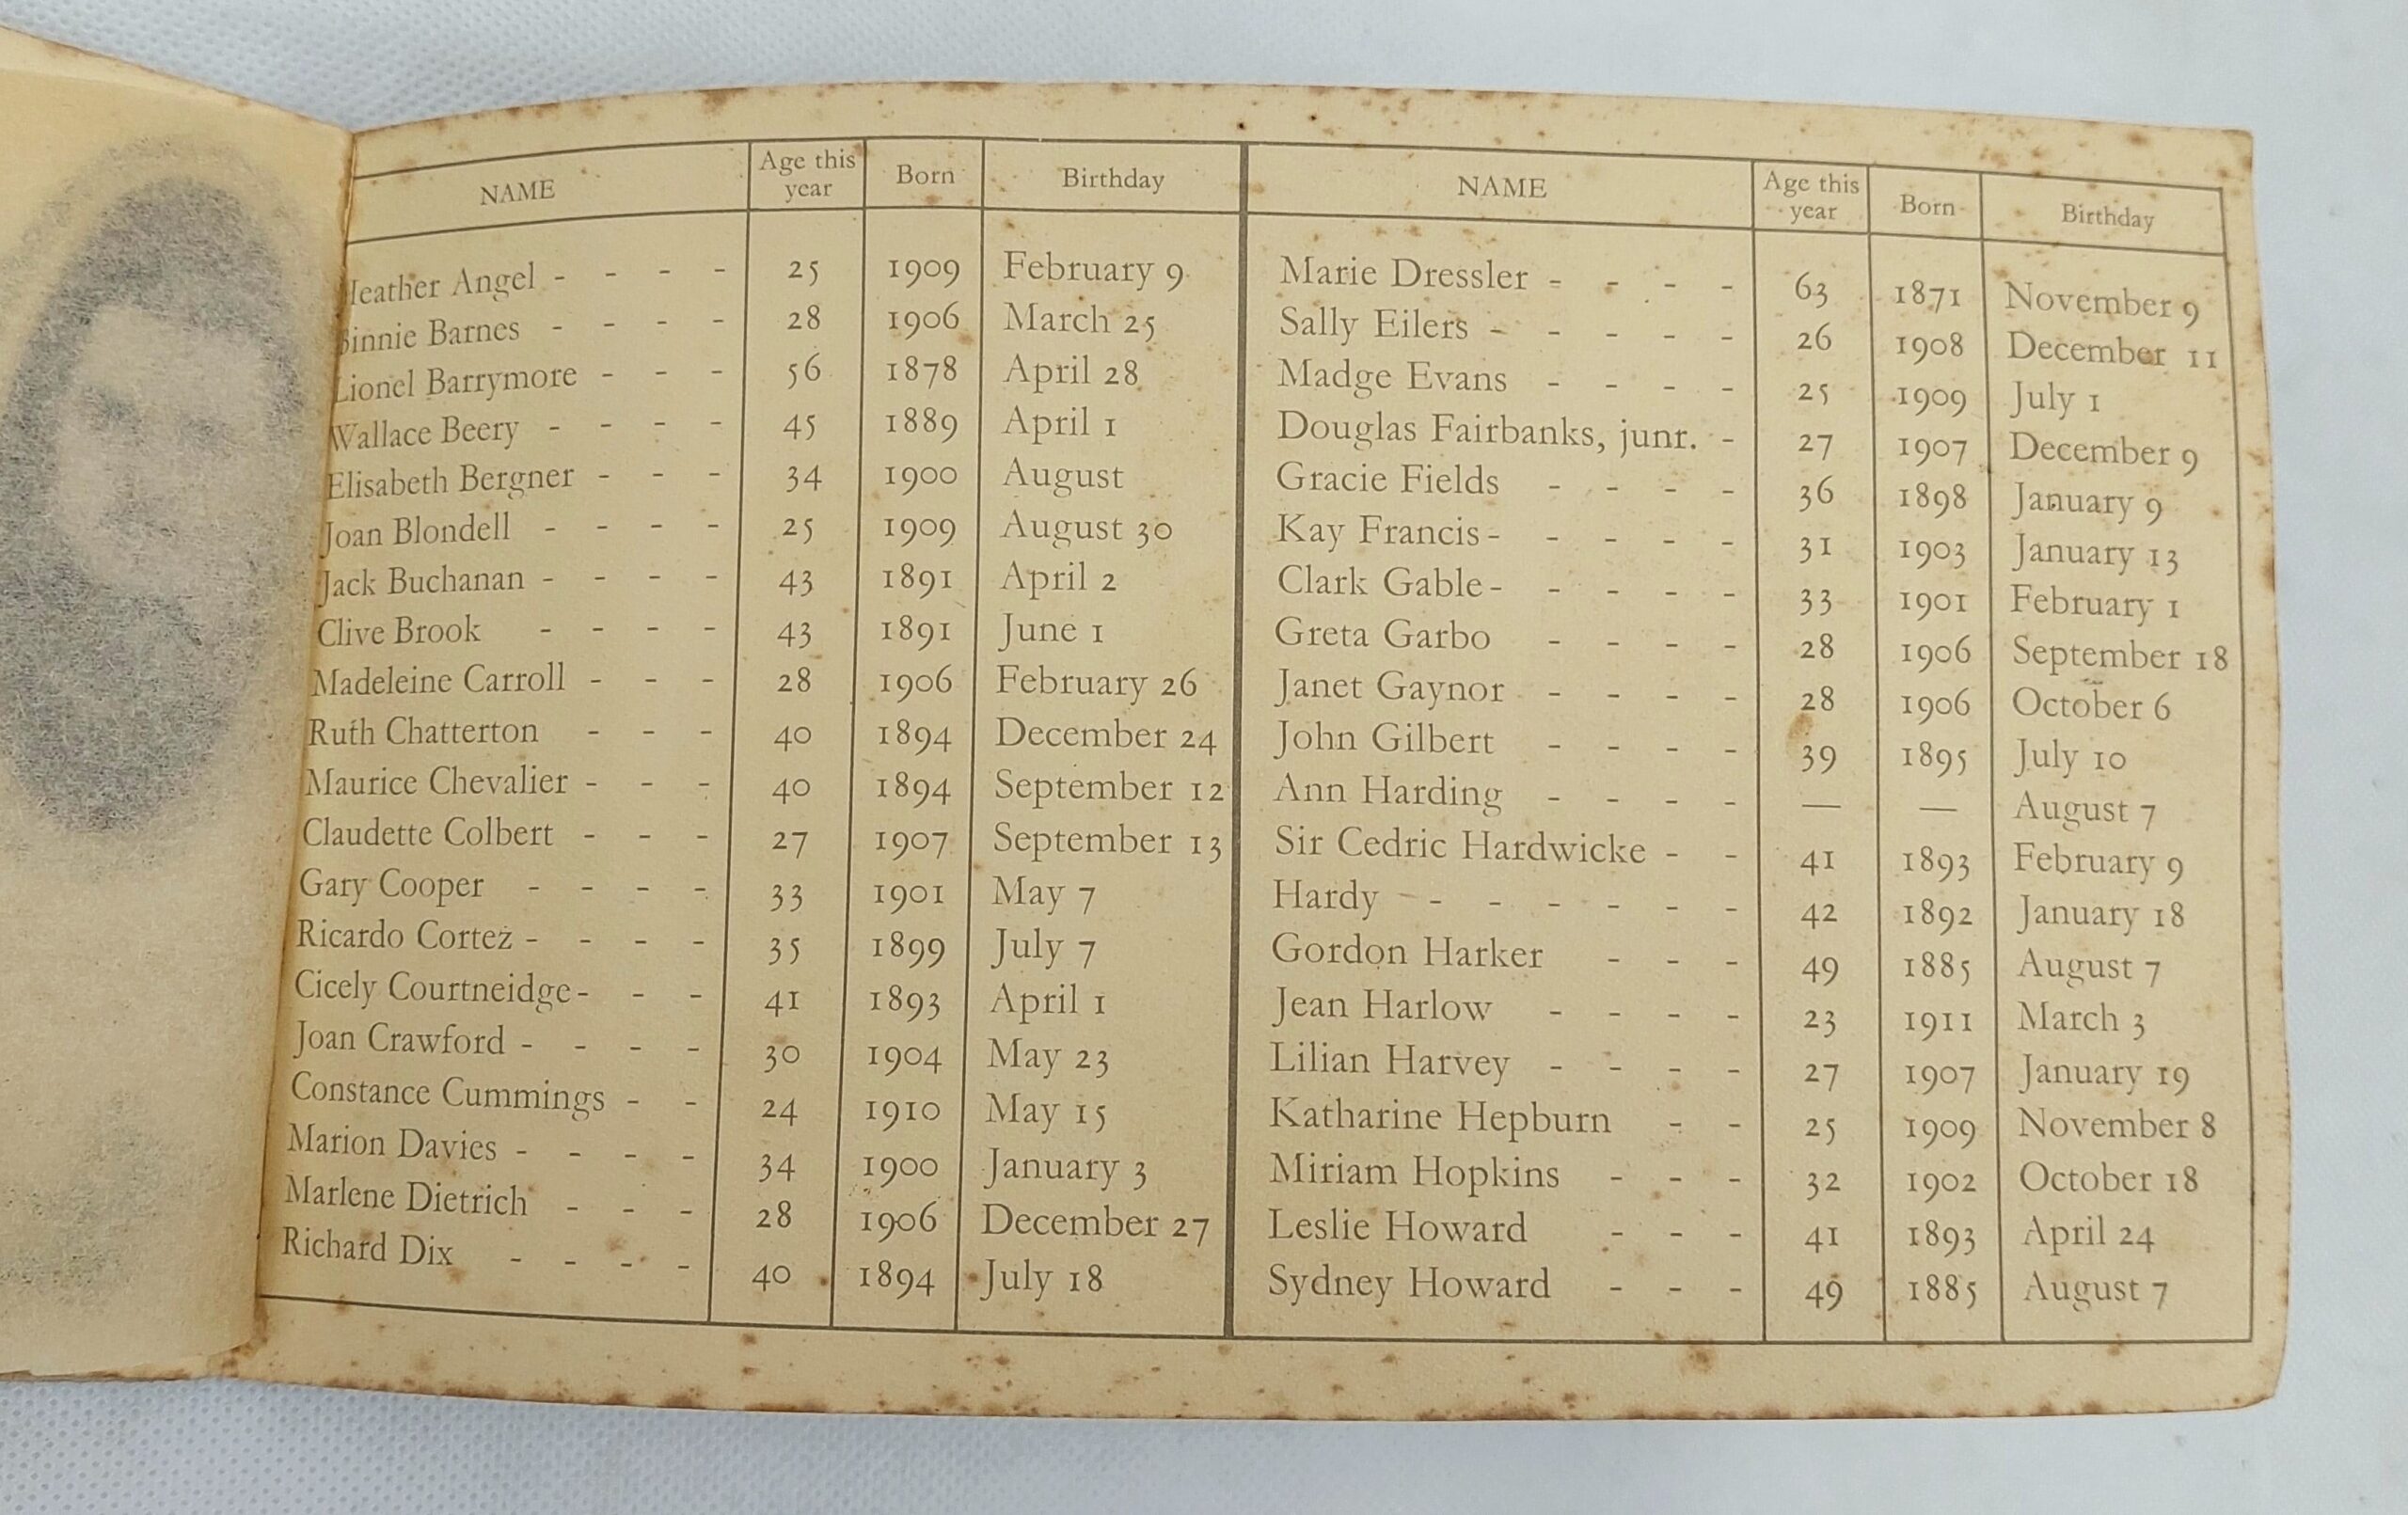 NAME Age this year Born Birthday
Heather Angel - - - - 25 1909 February 9
Binnie Barnes - - - - 28 1906 March 25
Lionel Barrymore - - - 56 1878 April 28
Wallace Beery - - - - 45 1889 April 1
Elisabeth Bergner - - - 34 1900 August
Joan Blondell - - - - 25 1909 August 30
Jack Buchanan - - - - 43 1891 April 2
Clive Brook - - - - 43 1891 June 1
Madeleine Carroll - - - 28 1906 February 26
Ruth Chatterton - - - 40 1894 December 24
Maurice Chevalier - - - 40 1894 September 12
Claudette Colbert - - - 27 1907 September 13
Gary Cooper - - - - 33 1901 May 7
Ricardo Cortez - - - - 35 1899 July 7
Cicely Courtneidge - - - 41 1893 April 1
Joan Crawford - - - - 30 1904 May 23
Constance Cummings - - 24 1910 May 15
Marion Davies - - - - 34 1900 January 3
Marlene Dietrich - - - 28 1906 December 27
Richard Dix - - - - 40 1894 July 18
NAME Age this year Born Birthday
Marie Dressler - - - - 63 1871 November 9
Sally Eilers - - - - - 26 1908 December 11
Madge Evans - - - - 25 1909 July 1
Douglas Fairbanks, junr. - 27 1907 December 9
Gracie Fields - - - - 36 1898 January 9
Kay Francis - - - - - 31 1903 January 13
Clark Gable - - - - - 33 1901 February 1
Greta Garbo - - - - 28 1906 September 18
Janet Gaynor - - - - 28 1906 October 6
John Gilbert - - - - 39 1895 July 10
Ann Harding - - - - — — August 7
Sir Cedric Hardwicke - - 41 1893 February 9
Hardy - - - - - - 42 1892 January 18
Gordon Harker - - - 49 1885 August 7
Jean Harlow - - - - 23 1911 March 3
Lilian Harvey - - - - 27 1907 January 19
Katharine Hepburn - - 25 1909 November 8
Miriam Hopkins - - - 32 1902 October 18
Leslie Howard - - - 41 1893 April 24
Sydney Howard - - - 49 1885 August 7